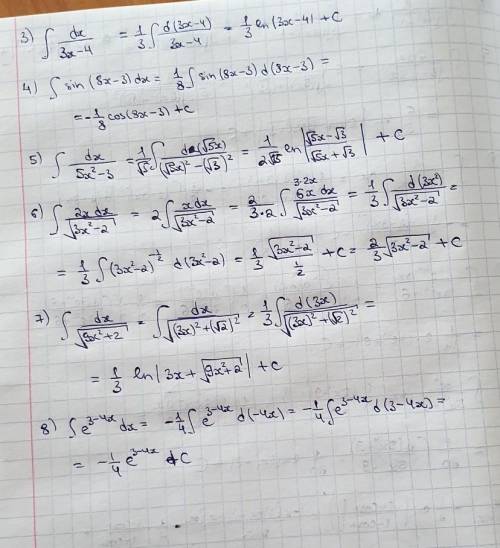 3) ∫ dx/(3x-4) = 1/3 ∫ d(3x-4)/(3x-4) = 1/3 ln(3x-4) + C
4) ∫ sin(8x-3) dx = 1/8 ∫ sin(8x-3) d(8x-3) =
= -1/8 cos(8x-3) + C
5) ∫ dx/(5x²-3) = 1/√5 ∫ d(√5x)/((√5x)²-(√3)²) = 1/(2√15) ln |(√5x-√3)/(√5x+√3)| + C
6) ∫ 2x dx/√(3x²-2) = 2∫ x dx/√(3x²-2) = 2/(3·2) ∫ 3·2x 6x dx/√(3x²-2) = 1/3 ∫ d(3x²)/√(3x²-2) =
= 1/3 ∫ (3x²-2)^(-1/2) d(3x²-2) = 1/3 √(3x²-2)/(1/2) + C = 2/3 √(3x²-2) + C
7) ∫ dx/√(9x²+2) = ∫ dx/√((3x)²+(√2)²) = 1/3 ∫ d(3x)/√((3x)²+(√2)²) =
= 1/3 ln|3x + √(9x²+2)| + C
8) ∫ e^(3-4x) dx = -1/4 ∫ e^(3-4x) d(-4x) = -1/4 ∫ e^(3-4x) d(3-4x) =
= -1/4 e^(3-4x) + C